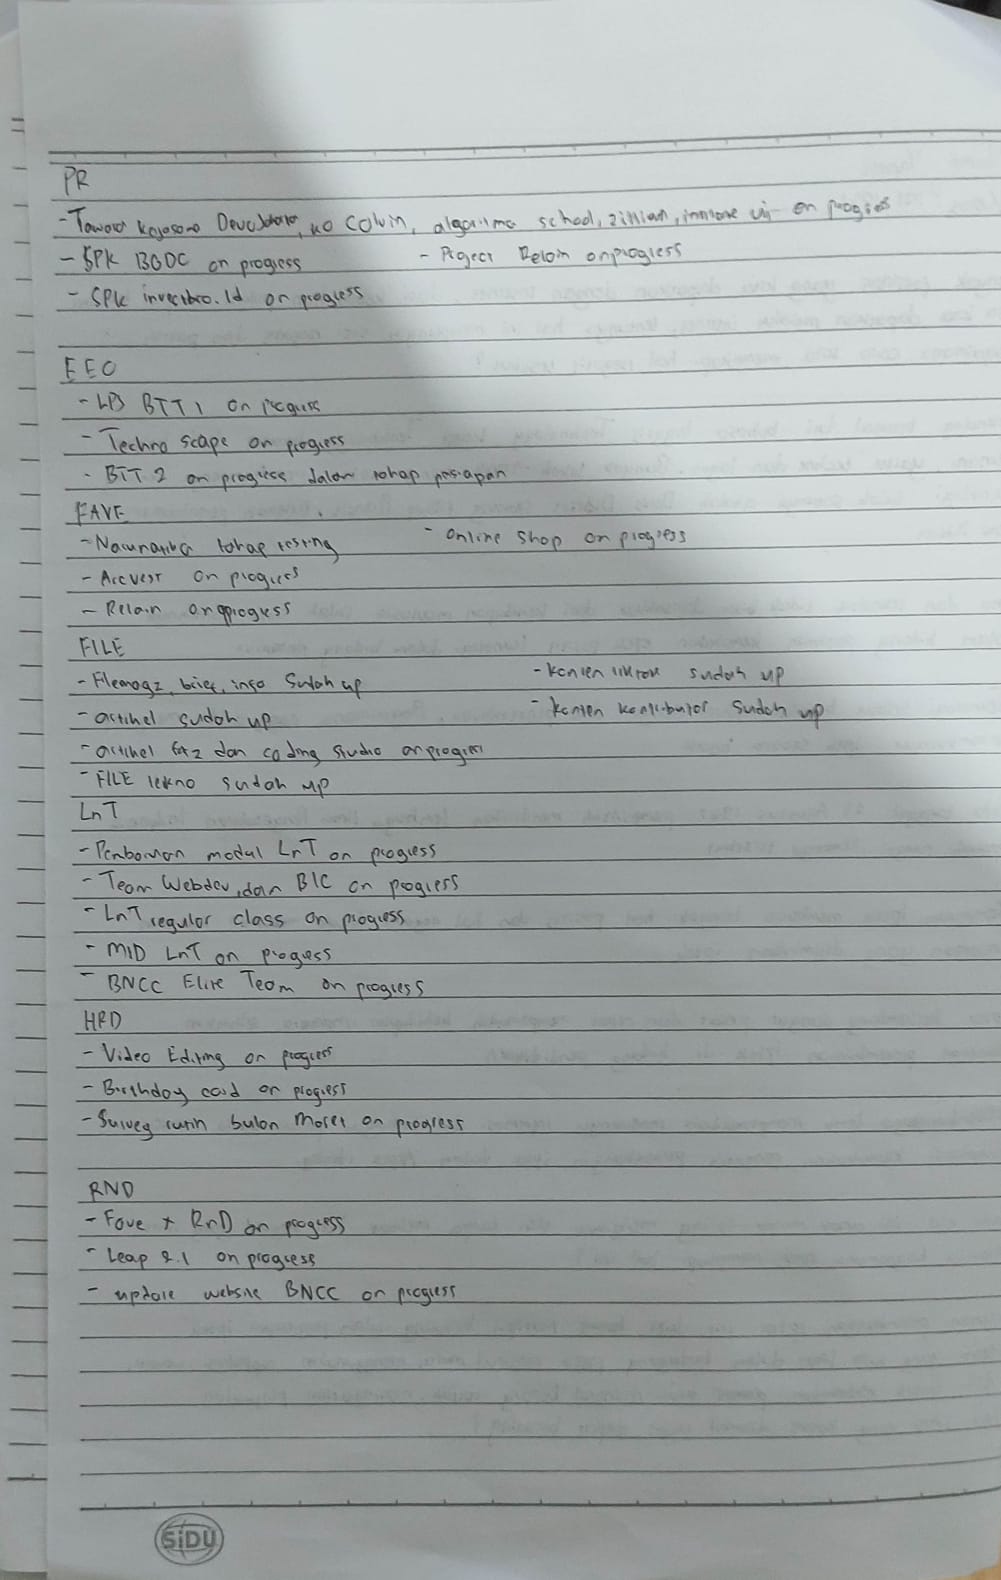 PR
- Tawaran Kerjasama Devcodelore, ko Colvin, algoritma school, zillian, on progress
- SPK BGDC on progress - Project Reloin on progress
- SPK investbro.id on progress
EEO
- LPJ BTT 1 on progress
- Techno scape on progress
- BTT 2 on progress dalam tahap persiapan
FAVE
- tahap testing - Online Shop on progress
- Arcvest on progress
- Relain on progress
FILE
- Filemagz, brief, info Sudah up - Konten tiktok sudah up
- artikel sudah up - konten kontributor sudah up
- artikel dan coding studio on progress
- FILE tekno sudah up
LnT
- Penbaman modul LnT on progress
- Team Webdev, dan BIC on progress
- LnT regular class on progress
- MID LnT on progress
- BNCC Elite Team on progress
HRD
- Video Editing on progress
- Birthday card on progress
- Survey rutin bulan Maret on progress
RND
- Fave + RnD on progress
- Leap 2.1 on progress
- update website BNCC on progress
SiDU